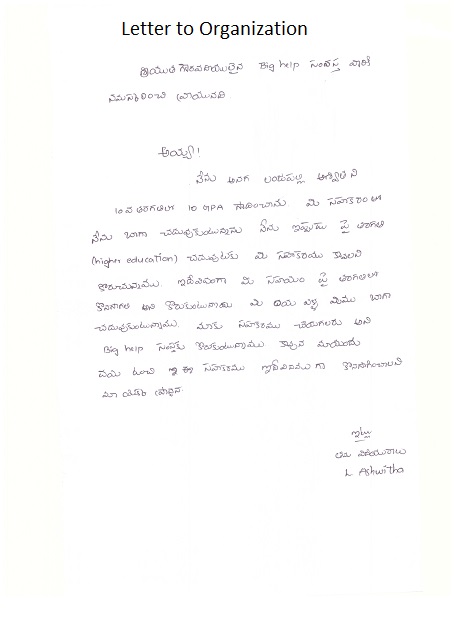 Letter to Organization
శ్రీయుత గౌరవనీయులైన Big help సంస్థ వారికి
నమస్కరించి వ్రాయునది
అయ్యా!
నేను అనగా లండుపల్లి అశ్విత ని
10వ తరగతిలో 10 GPA సాధించాను. మీ సహకారంతో
నేను బాగా చదువుకుంటున్నాను నేను ఇప్పుడు పై తరగతి
(higher education) చదువుటకు మీ సహకారము కావాలని
కోరుచున్నాము. ఇదేవిధంగా మీ సహాయం పై తరగతిలో
కొనసాగాలి అని కోరుకుంటున్నాను మీ దయ వల్ల మేము బాగా
చదువుకుంటున్నాము. మాకు సహకారము చేయగలరు అని
Big help సంస్థకు కోరుకుంటున్నాము కావున మాయందు
దయ ఉంచి ఈ సహకారము ఇదేవిధముగా కొనసాగించాలని
మా యొక్క ప్రార్థన
ఇట్లు
తమ విధేయురాలు
L Ashwitha